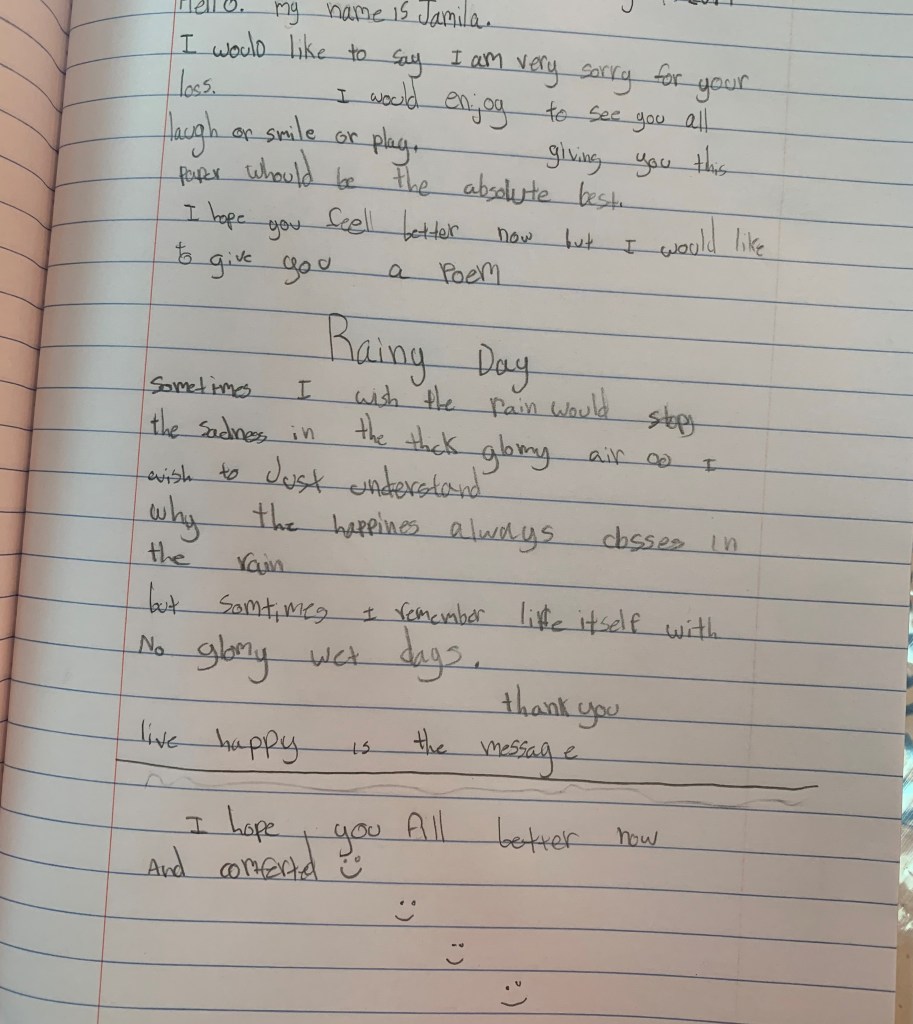 Hello. my name is Jamila.
I would like to say I am very sorry for your
loss. I would enjoy to see you all
laugh or smile or play. giving you this
paper whould be the absolute best.
I hope you feell better now but I would like
to give you a Poem
Rainy Day
Sometimes I wish the rain would stop
the sadness in the thck glomy air I
wish to Just understand
why the happines always closses in
the rain
but somtimes I remember life itself with
No glomy wet days.
thank you
live happy is the message
I hope, you All better now
And comferted